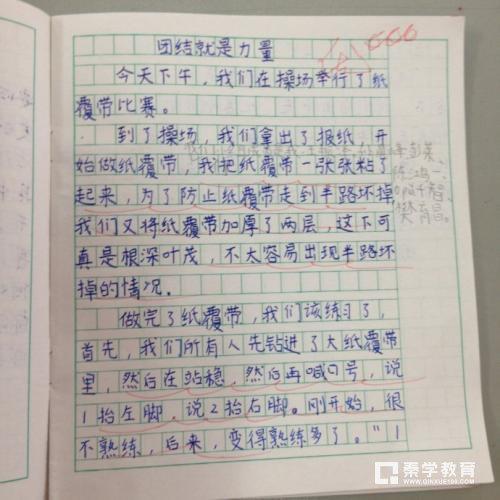 团结就是力量
666
今天下午，我们在操场举行了纸
覆带比赛。
到了操场，我们拿出了报纸，开
始做纸覆带，我把纸覆带一张张粘了
起来，为了防止纸覆带走到半路坏掉
我们又将纸覆带加厚了两层，这下可
真是根深叶茂，不大容易出现半路坏
掉的情况。
做完了纸覆带，我们该练习了，
首先，我们所有人先钻进了大纸覆带
里，然后在站稳，然后再喊口号，说
1抬左脚，说2抬右脚。刚开始，很
不熟练，后来，变得熟练多了。"1
秦学教育
WWW.QINXUE100.COM